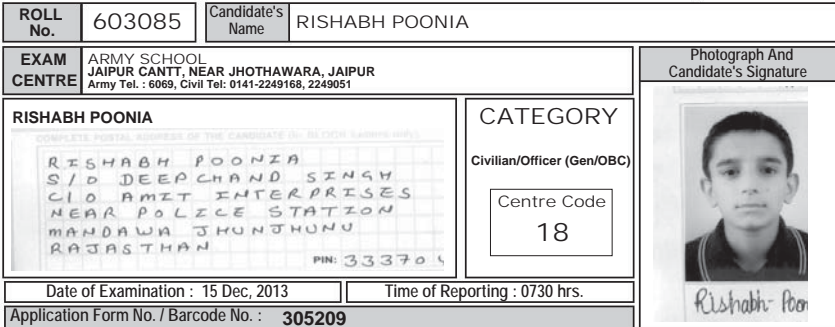 ROLL No. 603085 Candidate's Name RISHABH POONIA
EXAM CENTRE
ARMY SCHOOL
JAIPUR CANTT, NEAR JHOTHAWARA, JAIPUR
Army Tel. : 6069, Civil Tel: 0141-2249168, 2249051
Photograph And
Candidate's Signature
RISHABH POONIA
COMPLETE POSTAL ADDRESS OF THE CANDIDATE (In BLOCK Letters only)
RISHABH POONIA
S/O DEEPCHAND SINGH
C/O AMIT INTERPRISES
NEAR POLICE STATION
MANDAWA JHUNJHUNU
RAJASTHAN
PIN: 333704
CATEGORY
Civilian/Officer (Gen/OBC)
Centre Code
18
Rishabh Poon
Date of Examination : 15 Dec, 2013
Time of Reporting : 0730 hrs.
Application Form No. / Barcode No. : 305209